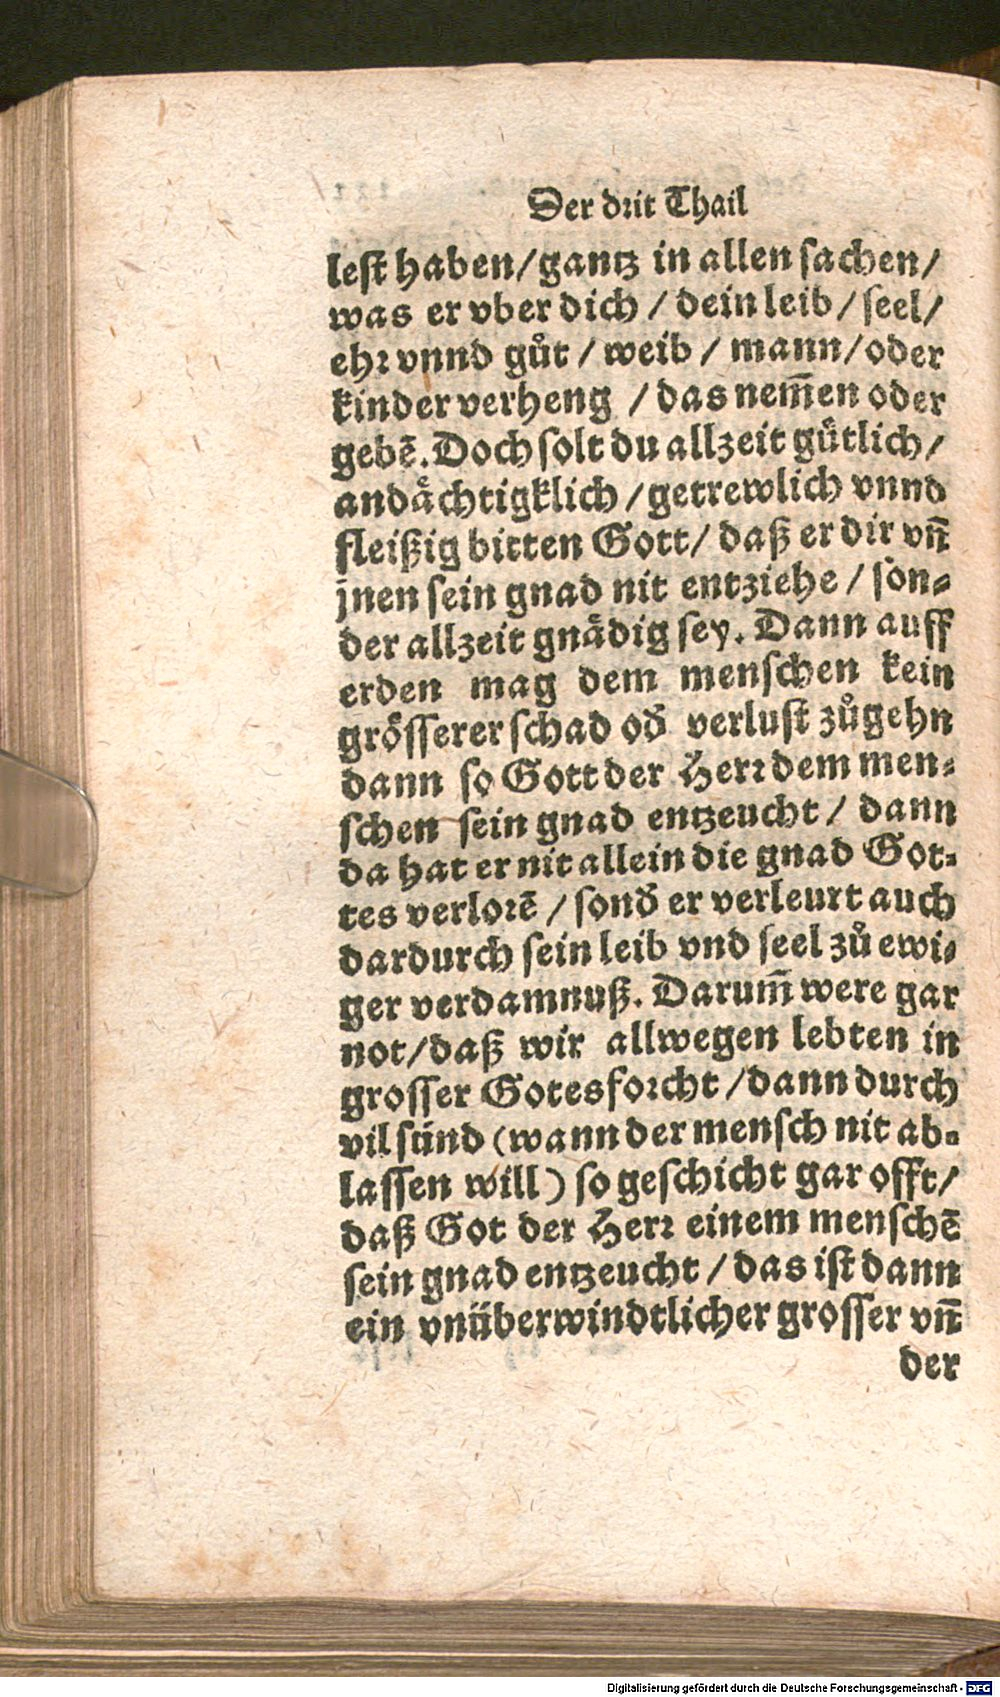 Der drit Thail
lest haben/gantz in allen sachen/
was er vber dich / dein leib / seel/
ehr vnnd gůt / weib / mann/oder
kinder verheng / das nem̃en oder
gebē. Doch solt du allzeit gůtlich/
andaͤchtigklich / getrewlich vnnd
fleißig bitten Gott/ daß er dir vñ
jnen sein gnad nit entziehe / son-
der allzeit gnaͤdig sey. Dann auff
erden mag dem menschen kein
groͤsserer schad oð verlust zůgehn
dann so Gott der Herr dem men-
schen sein gnad entzeucht / dann
da hat er nit allein die gnad Got-
tes verlorē / sonð er verleurt auch
dardurch sein leib vnd seel zů ewi-
ger verdamnuß. Darum̃ were gar
not/daß wir allwegen lebten in
grosser Gotesforcht / dann durch
vil sünd (wann der mensch nit ab-
lassen will) so geschicht gar offt/
daß Got der Herr einem menschē
sein gnad entzeucht / das ist dann
ein vnüberwindtlicher grosser vñ
der
Digitalisierung gefördert durch die Deutsche Forschungsgemeinschaft - DFG